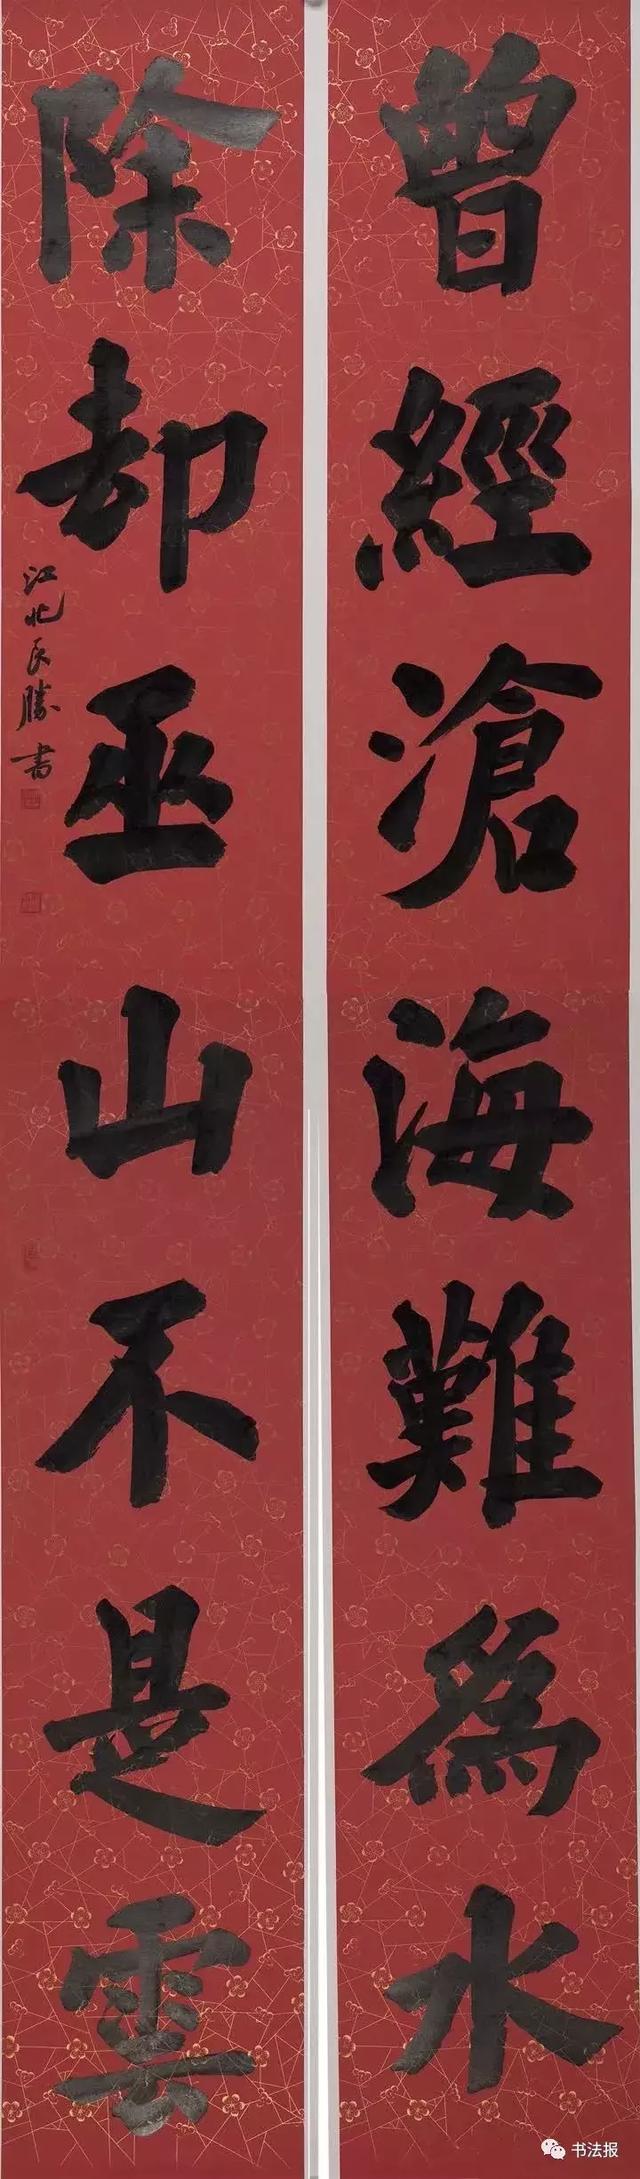 曾經滄海難為水
除却巫山不是雲
江北民勝書
书法报